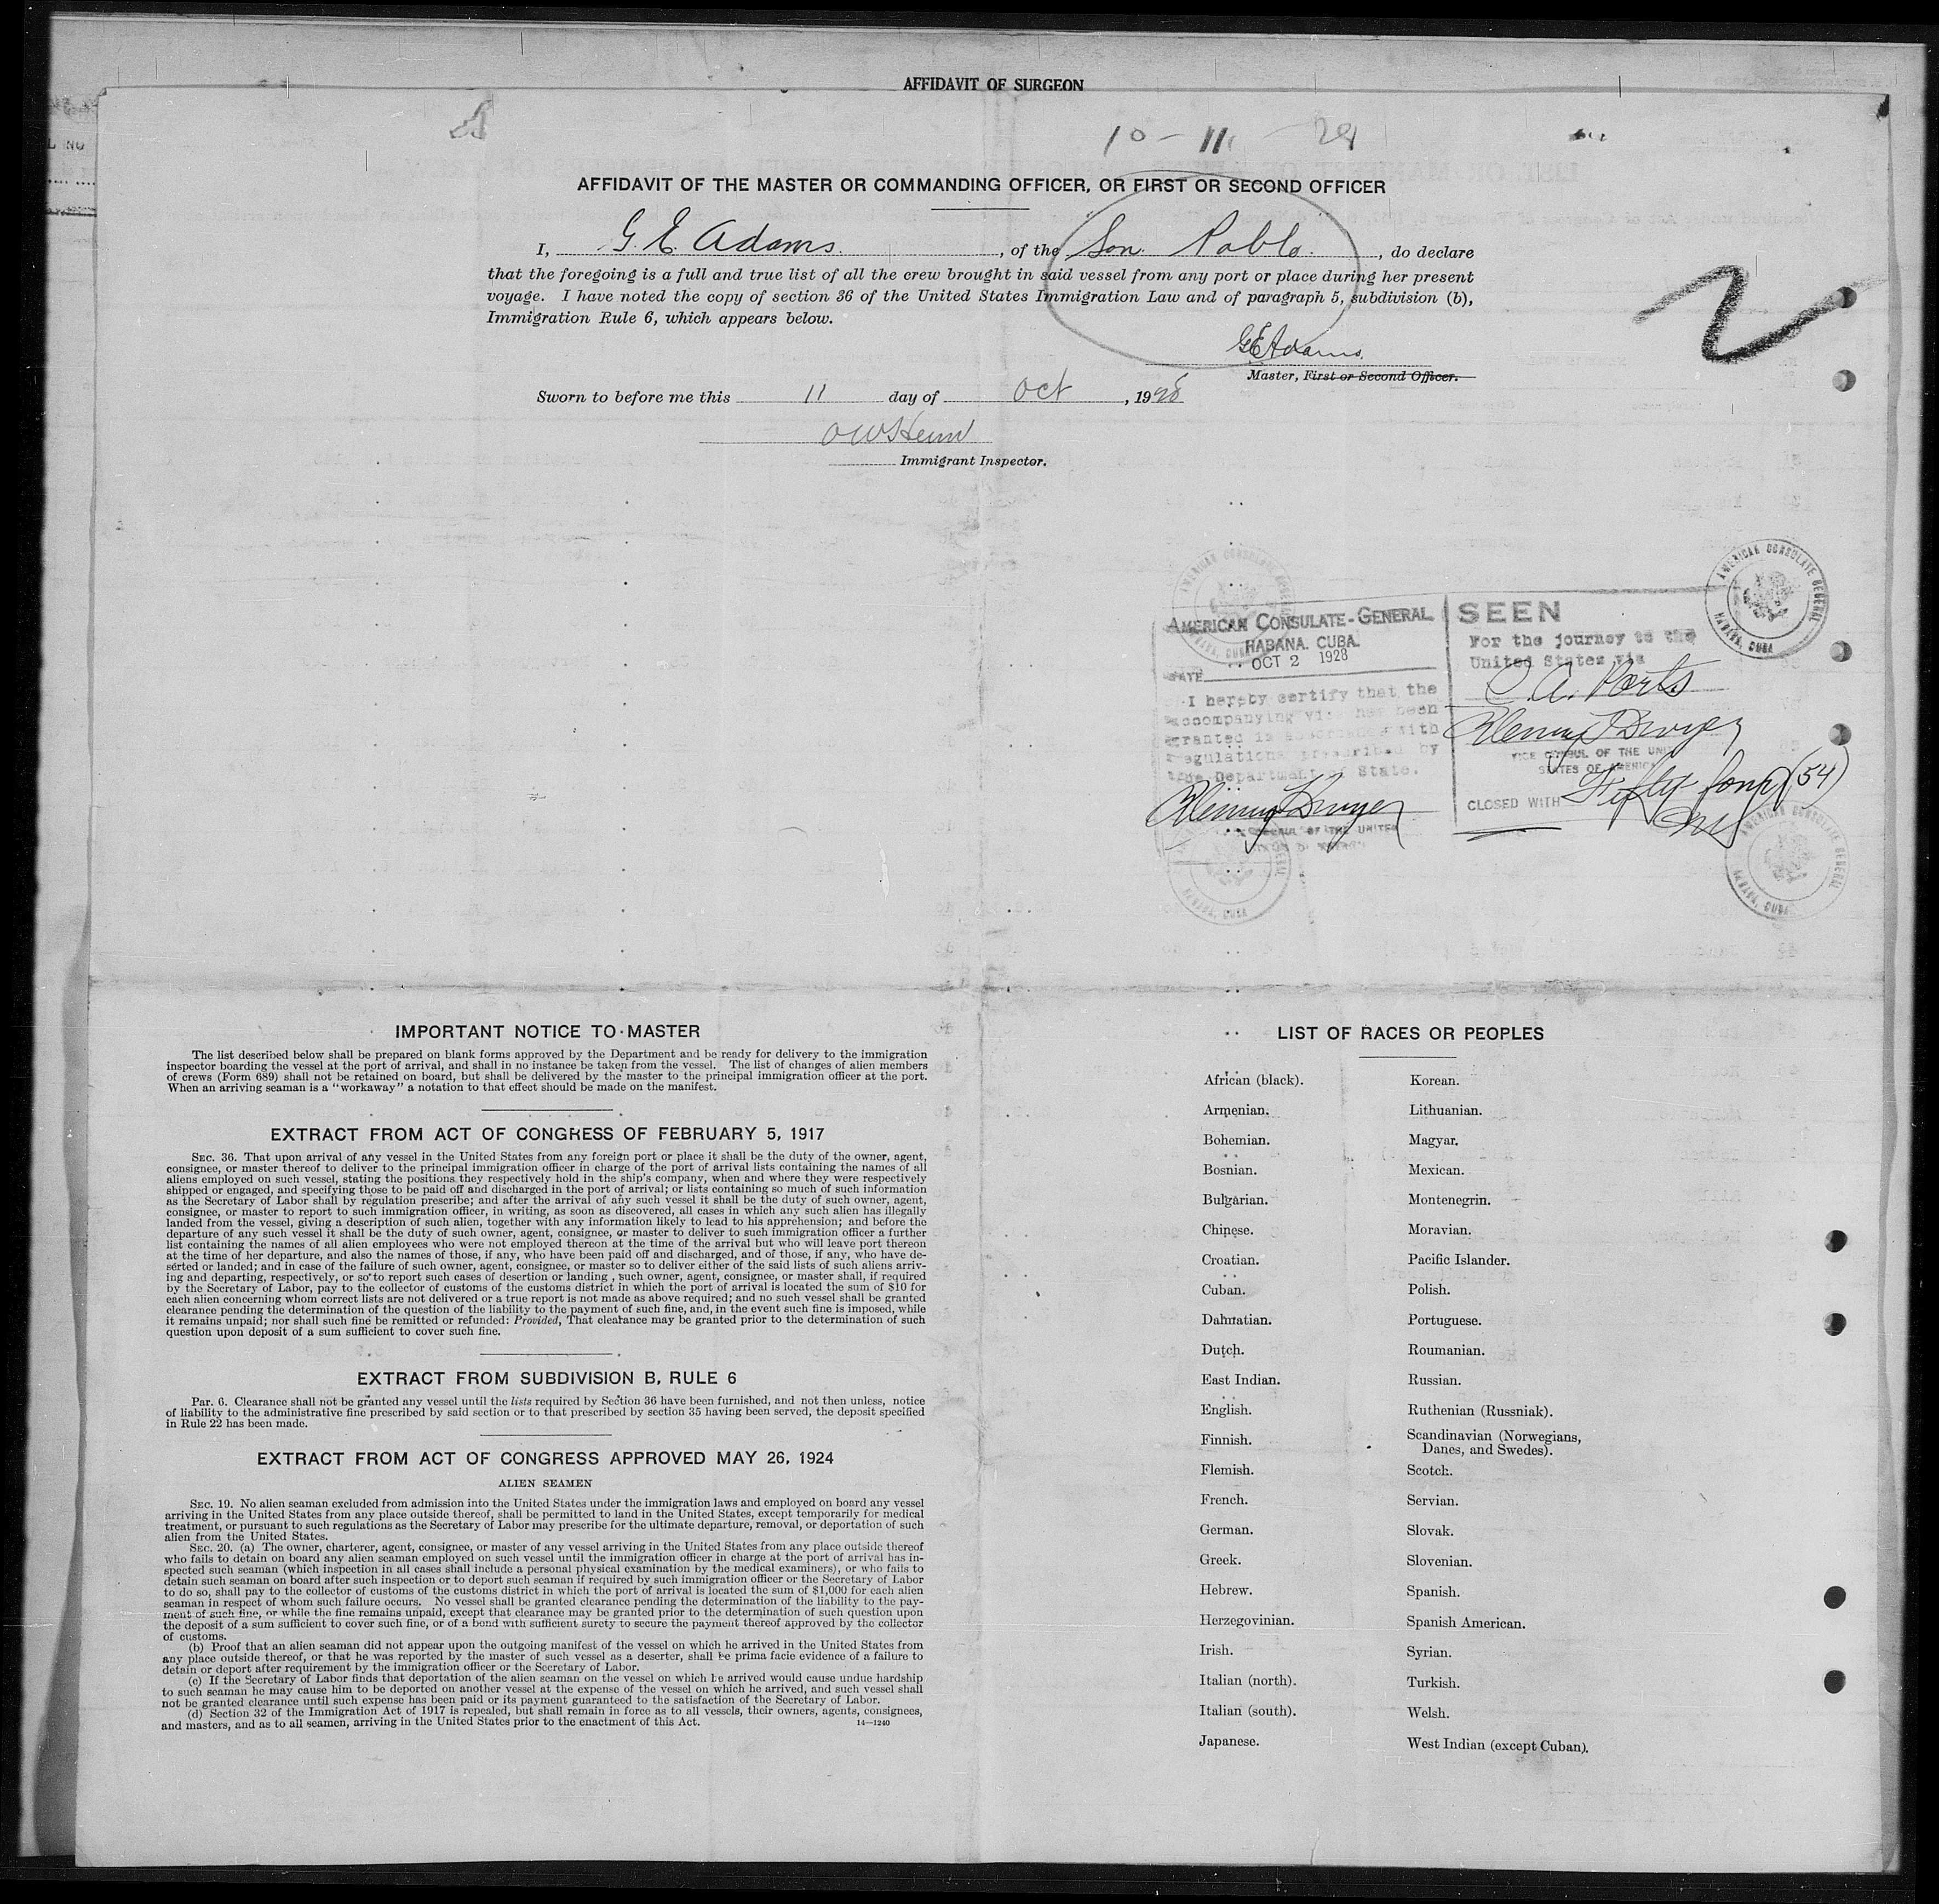 AFFIDAVIT OF SURGEON
10 - 11 - 28
AFFIDAVIT OF THE MASTER OR COMMANDING OFFICER, OR FIRST OR SECOND OFFICER
I, G. E. Adams., of the San Pablo., do declare
that the foregoing is a full and true list of all the crew brought in said vessel from any port or place during her present
voyage. I have noted the copy of section 36 of the United States Immigration Law and of paragraph 5, subdivision (b),
Immigration Rule 6, which appears below.
2
GEAdams.
Master, First or Second Officer.
Sworn to before me this 11 day of Oct, 1928
Immigrant Inspector.
AMERICAN CONSULATE GENERAL
HABANA, CUBA
AMERICAN CONSULATE-GENERAL
HABANA. CUBA.
OCT 2 1928
DATE
I hereby certify that the
accompanying visa has been
granted in accordance with
regulations prescribed by
the Department of State.
SEEN
For the journey to the
United States via
C. A. Ports
VICE CONSUL OF THE UNITED
STATES OF AMERICA
CLOSED WITH Fifty four (54)
AMERICAN CONSULATE GENERAL
HABANA, CUBA
IMPORTANT NOTICE TO MASTER
The list described below shall be prepared on blank forms approved by the Department and be ready for delivery to the immigration
inspector boarding the vessel at the port of arrival, and shall in no instance be taken from the vessel. The list of changes of alien members
of crews (Form 689) shall not be retained on board, but shall be delivered by the master to the principal immigration officer at the port.
When an arriving seaman is a "workaway" a notation to that effect should be made on the manifest.
EXTRACT FROM ACT OF CONGRESS OF FEBRUARY 5, 1917
SEC. 36. That upon arrival of any vessel in the United States from any foreign port or place it shall be the duty of the owner, agent,
consignee, or master thereof to deliver to the principal immigration officer in charge of the port of arrival lists containing the names of all
aliens employed on such vessel, stating the positions they respectively hold in the ship's company, when and where they were respectively
shipped or engaged, and specifying those to be paid off and discharged in the port of arrival; or lists containing so much of such information
as the Secretary of Labor shall by regulation prescribe; and after the arrival of any such vessel it shall be the duty of such owner, agent,
consignee, or master to report to such immigration officer, in writing, as soon as discovered, all cases in which any such alien has illegally
landed from the vessel, giving a description of such alien, together with any information likely to lead to his apprehension; and before the
departure of any such vessel it shall be the duty of such owner, agent, consignee, or master to deliver to such immigration officer a further
list containing the names of all alien employees who were not employed thereon at the time of the arrival but who will leave port thereon
at the time of her departure, and also the names of those, if any, who have been paid off and discharged, and of those, if any, who have de-
serted or landed; and in case of the failure of such owner, agent, consignee, or master so to deliver either of the said lists of such aliens arriv-
ing and departing, respectively, or so to report such cases of desertion or landing, such owner, agent, consignee, or master shall, if required
by the Secretary of Labor, pay to the collector of customs of the customs district in which the port of arrival is located the sum of $10 for
each alien concerning whom correct lists are not delivered or a true report is not made as above required; and no such vessel shall be granted
clearance pending the determination of the question of the liability to the payment of such fine, and, in the event such fine is imposed, while
it remains unpaid; nor shall such fine be remitted or refunded: Provided, That clearance may be granted prior to the determination of such
question upon deposit of a sum sufficient to cover such fine.
EXTRACT FROM SUBDIVISION B, RULE 6
Par. 6. Clearance shall not be granted any vessel until the lists required by Section 36 have been furnished, and not then unless, notice
of liability to the administrative fine prescribed by said section or to that prescribed by section 35 having been served, the deposit specified
in Rule 22 has been made.
EXTRACT FROM ACT OF CONGRESS APPROVED MAY 26, 1924
ALIEN SEAMEN
SEC. 19. No alien seaman excluded from admission into the United States under the immigration laws and employed on board any vessel
arriving in the United States from any place outside thereof, shall be permitted to land in the United States, except temporarily for medical
treatment, or pursuant to such regulations as the Secretary of Labor may prescribe for the ultimate departure, removal, or deportation of such
alien from the United States.
SEC. 20. (a) The owner, charterer, agent, consignee, or master of any vessel arriving in the United States from any place outside thereof
who fails to detain on board any alien seaman employed on such vessel until the immigration officer in charge at the port of arrival has in-
spected such seaman (which inspection in all cases shall include a personal physical examination by the medical examiners), or who fails to
detain such seaman on board after such inspection or to deport such seaman if required by such immigration officer or the Secretary of Labor
to do so, shall pay to the collector of customs of the customs district in which the port of arrival is located the sum of $1,000 for each alien
seaman in respect of whom such failure occurs. No vessel shall be granted clearance pending the determination of the liability to the pay-
ment of such fine, or while the fine remains unpaid, except that clearance may be granted prior to the determination of such question upon
the deposit of a sum sufficient to cover such fine, or of a bond with sufficient surety to secure the payment thereof approved by the collector
of customs.
(b) Proof that an alien seaman did not appear upon the outgoing manifest of the vessel on which he arrived in the United States from
any place outside thereof, or that he was reported by the master of such vessel as a deserter, shall be prima facie evidence of a failure to
detain or deport after requirement by the immigration officer or the Secretary of Labor.
(c) If the Secretary of Labor finds that deportation of the alien seaman on the vessel on which he arrived would cause undue hardship
to such seaman he may cause him to be deported on another vessel at the expense of the vessel on which he arrived, and such vessel shall
not be granted clearance until such expense has been paid or its payment guaranteed to the satisfaction of the Secretary of Labor.
(d) Section 32 of the Immigration Act of 1917 is repealed, but shall remain in force as to all vessels, their owners, agents, consignees,
and masters, and as to all seamen, arriving in the United States prior to the enactment of this Act.
14—1240
LIST OF RACES OR PEOPLES
African (black).
Armenian.
Bohemian.
Bosnian.
Bulgarian.
Chinese.
Croatian.
Cuban.
Dalmatian.
Dutch.
East Indian.
English.
Finnish.
Flemish.
French.
German.
Greek.
Hebrew.
Herzegovinian.
Irish.
Italian (north).
Italian (south).
Japanese.
Korean.
Lithuanian.
Magyar.
Mexican.
Montenegrin.
Moravian.
Pacific Islander.
Polish.
Portuguese.
Roumanian.
Russian.
Ruthenian (Russniak).
Scandinavian (Norwegians,
Danes, and Swedes).
Scotch.
Servian.
Slovak.
Slovenian.
Spanish.
Spanish American.
Syrian.
Turkish.
Welsh.
West Indian (except Cuban).